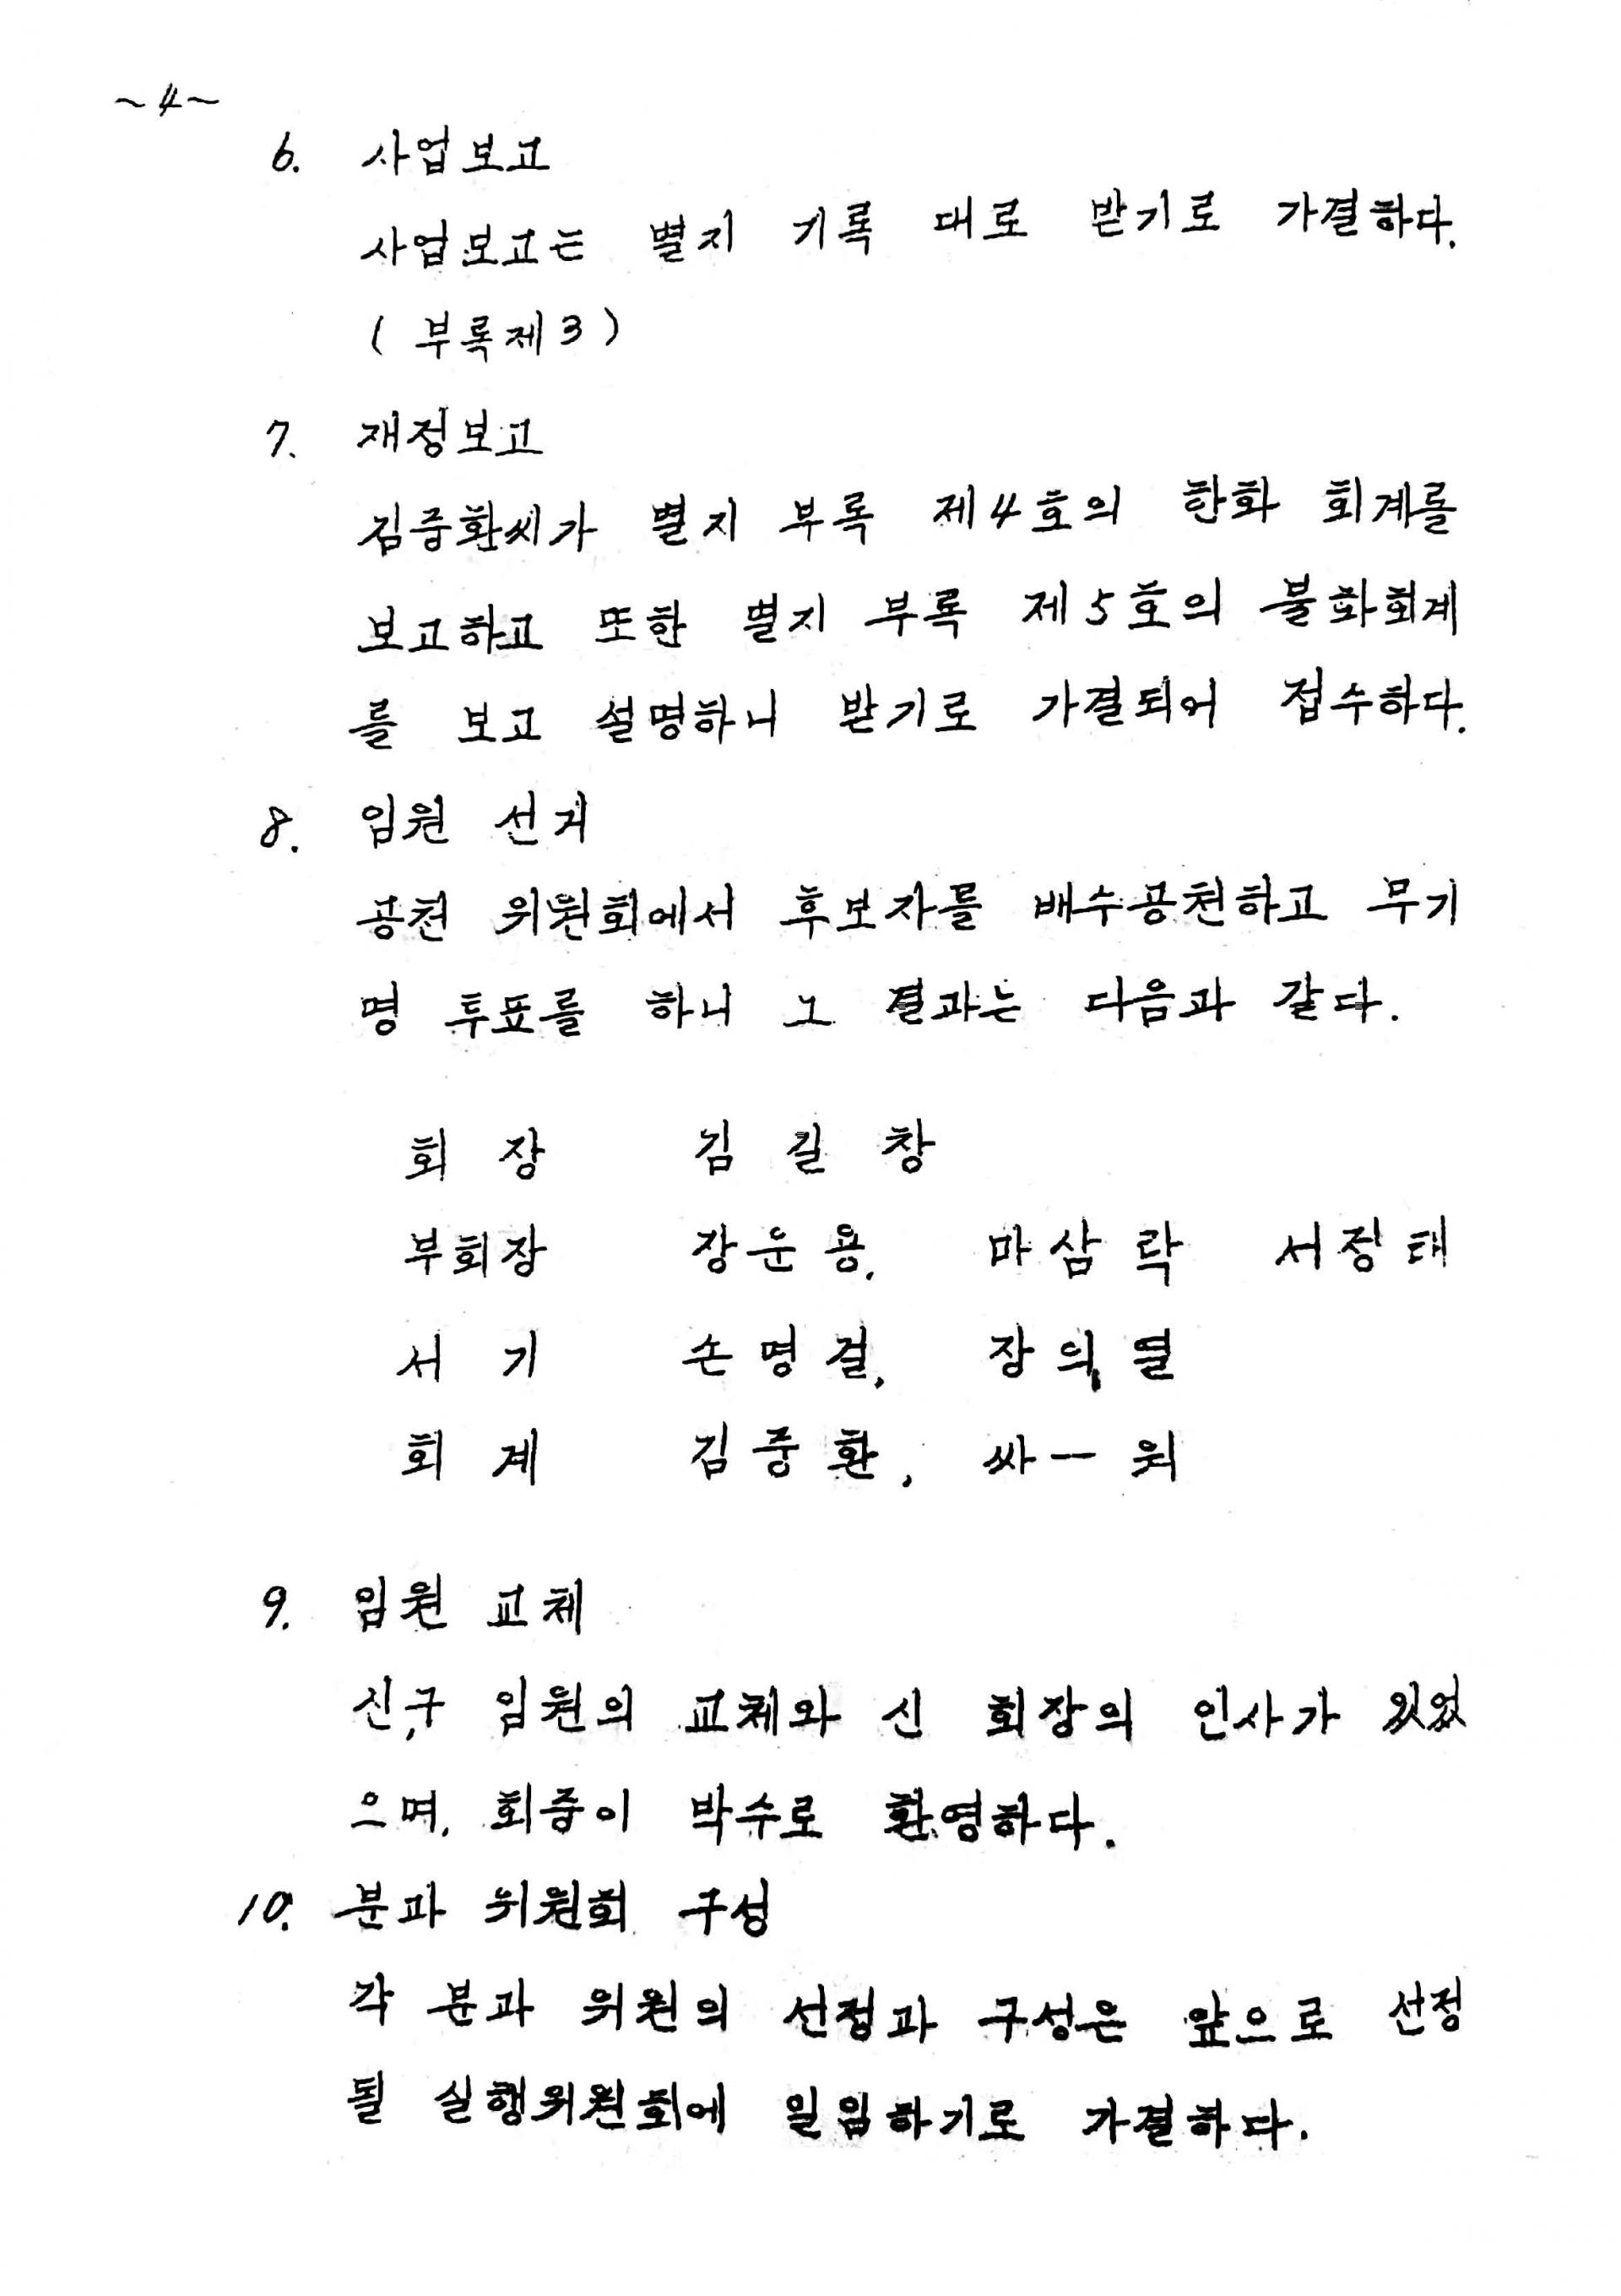 ~4~
6. 사업보고
사업보고는 별지 기록 대로 받기로 가결하다.
( 부록제3 )
7. 재정보고
김중환씨가 별지 부록 제4호의 한화 회계를
보고하고 또한 별지 부록 제5호의 불화회계
를 보고 설명하니 받기로 가결되어 접수하다.
8. 임원 선거
공천 위원회에서 후보자를 배수공천하고 무기
명 투표를 하니 그 결과는 다음과 같다.
회 장 김 길 창
부회장 장운용, 마삼락 서정태
서 기 손명걸, 장의열
회 계 김중환, 싸ー윅
9. 임원 교체
신,구 임원의 교체와 신 회장의 인사가 있었
으며, 회중이 박수로 환영하다.
10. 분과 위원회 구성
각 분과 위원의 선정과 구성은 앞으로 선정
될 실행위원회에 일임하기로 가결하다.